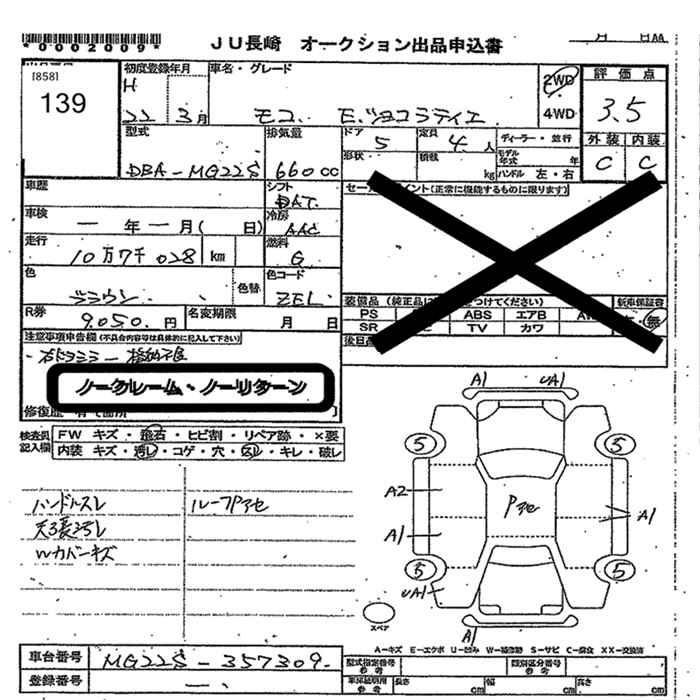 *0002009*
JU長崎 オークション出品申込書
[858]
139
初度登録年月
H 22 3月
車名・グレード
モコ E.ショコラティエ
2WD
4WD
評価点
3.5
外装 内装
C C
型式
DBA-MG22S
排気量
660 cc
ドア 5
定員 4人
ディーラー・並行
形状
積載 kg
モデル年式 年
ハンドル 左・右
車歴
シフト
DAT
車検
一年一月( 日)
冷房
AAC
走行
10万7千028 km
燃料
G
色
ブラウン
色替
色コード
ZEL
R券
9,050.円
名変期限 月 日
装備品
PS ABS エアB
SR TV カワ
新車保証書
無
注意事項申告欄(不具合内容等は具体的に記入して下さい)
・右ドアミラー格納不良
ノークレーム・ノーリターン
検査員記入欄
FW キズ・飛石・ヒビ割・リペア跡・×要
内装 キズ・汚レ・コゲ・穴・スレ・キレ・破レ
ハンドルスレ
ルーフPアセ
天張汚レ
Wカバーキズ
A1 UA1
5 5
A2
Pアセ
A1
A1
5 5
UA1
スペア
A1
A-キズ E-エクボ U-凹み W-補修跡 S-サビ C-腐食 XX-交換済
車台番号
MG22S-357309.
登録番号
型式指定番号 参考
類別区分番号 参考
長さ cm
幅 cm
高さ cm